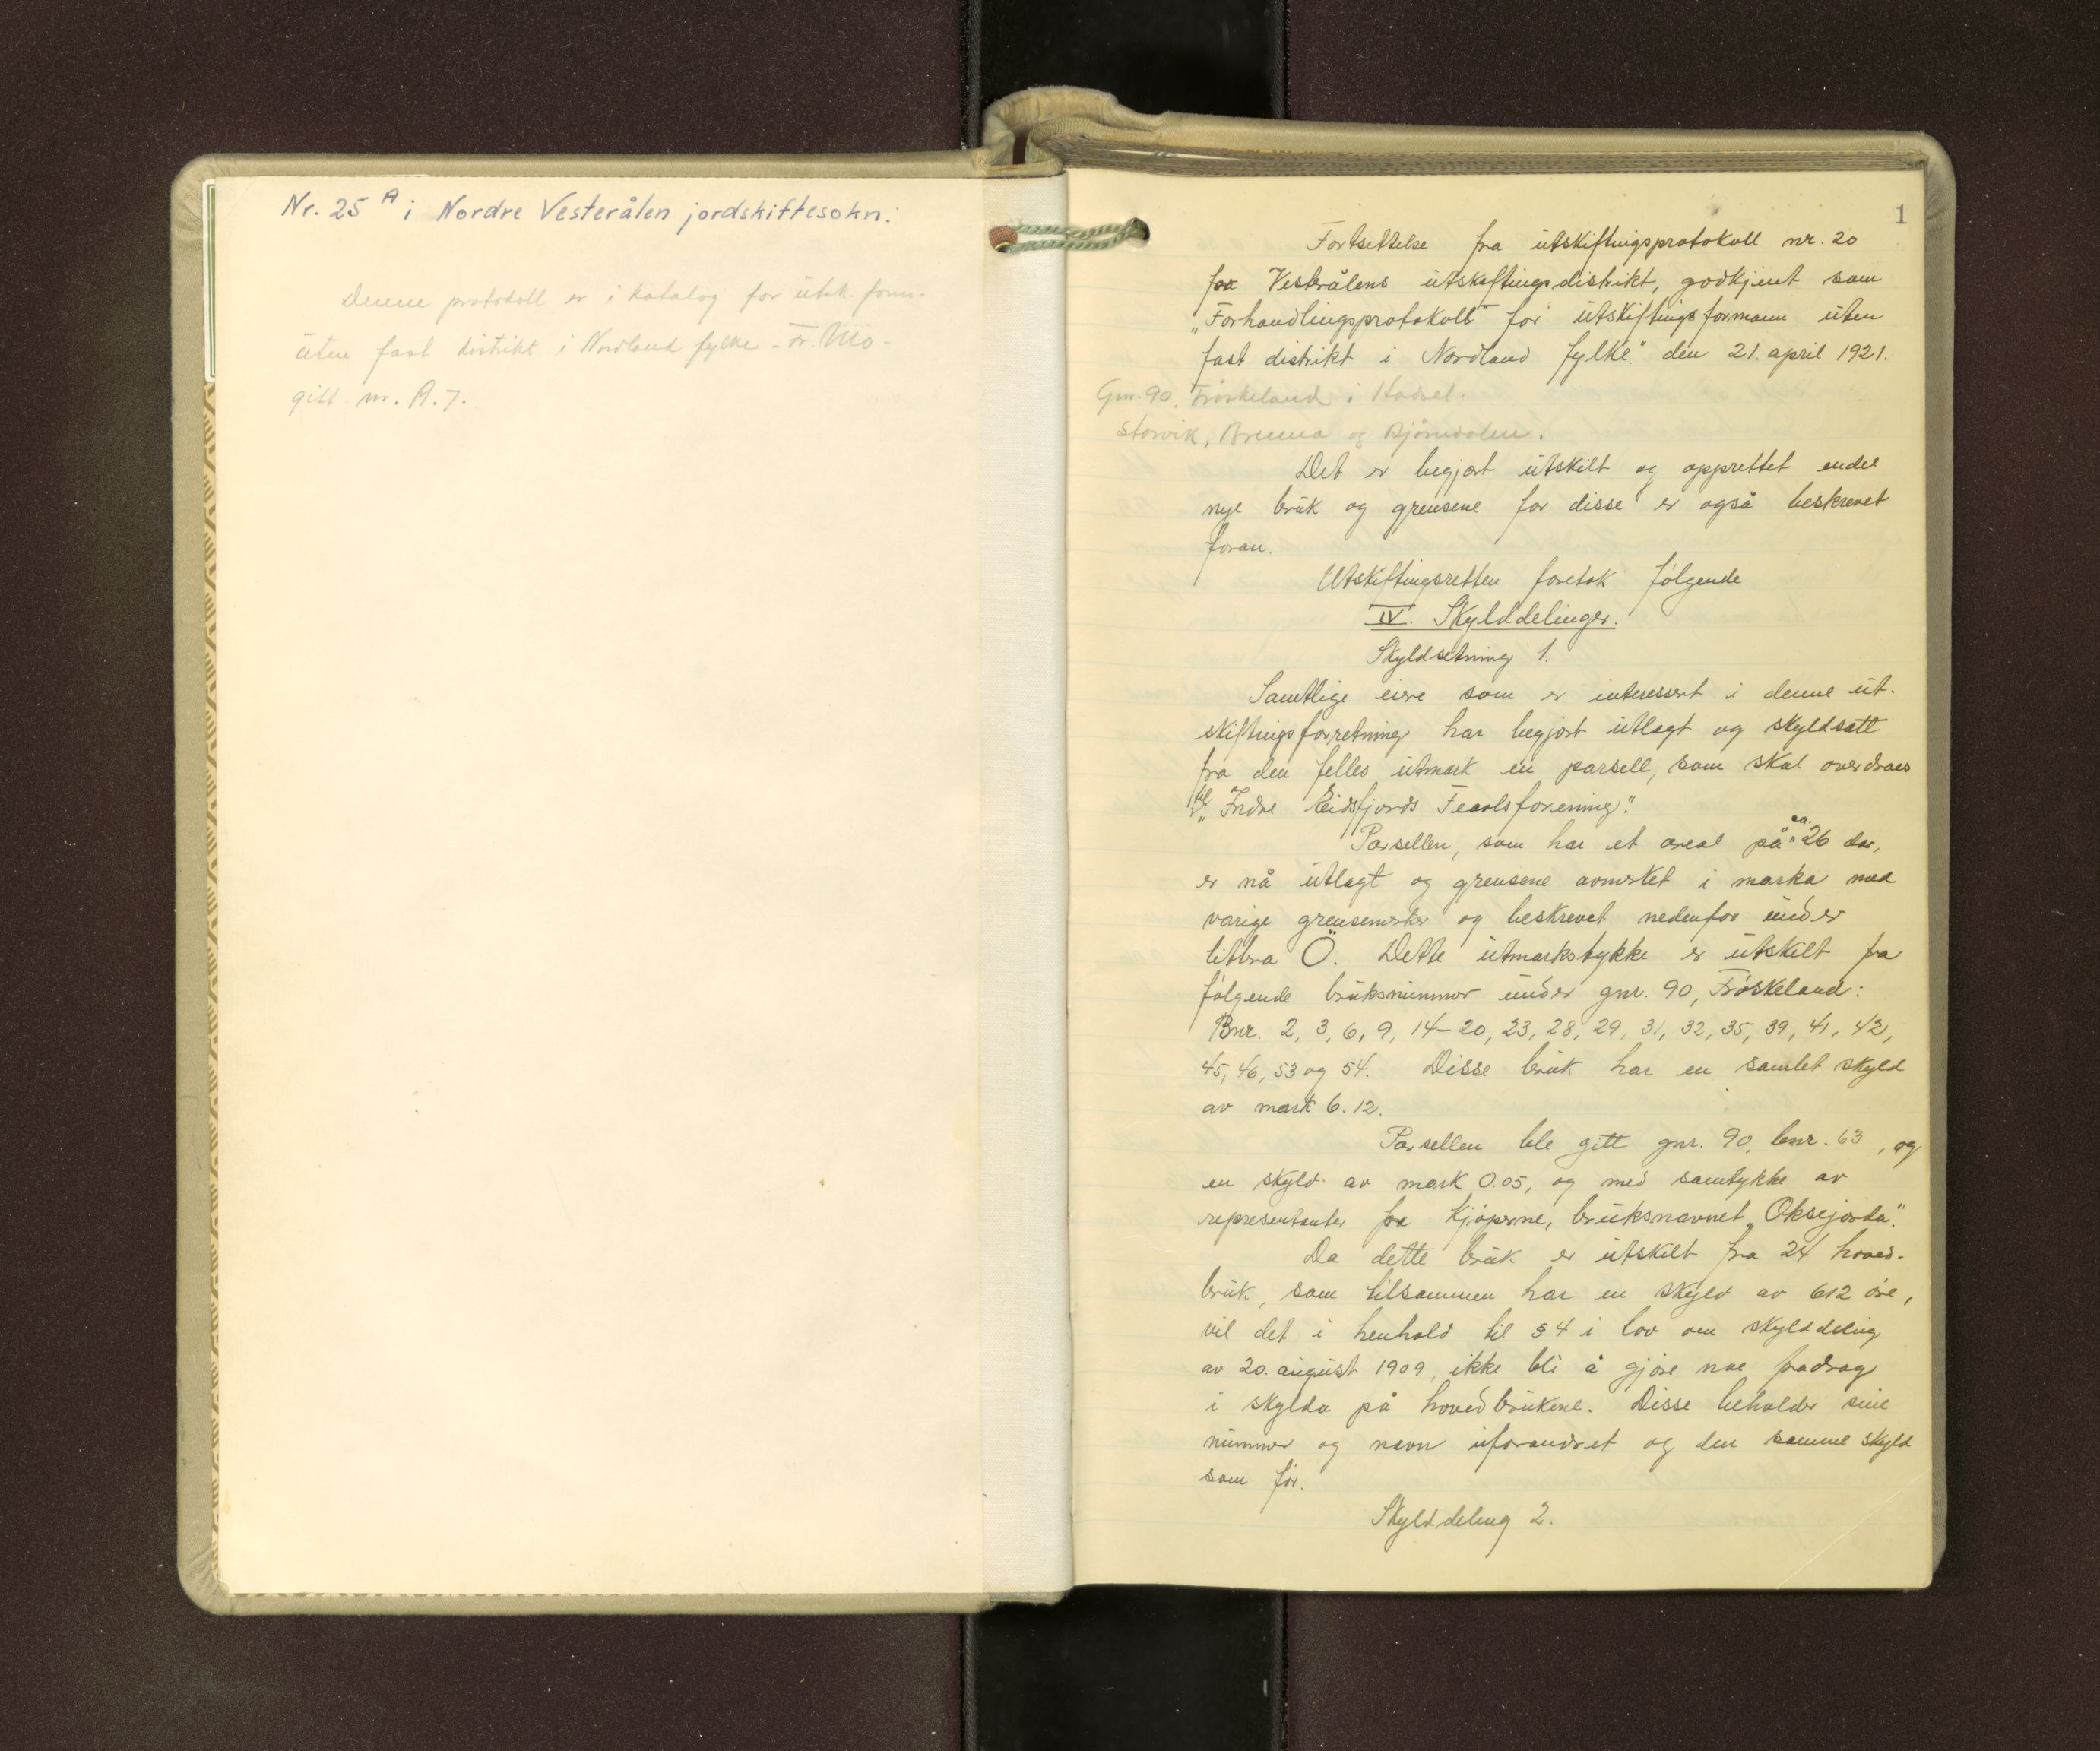 Nr. 25 A i Nordre Vesterålen jordskiftesokn:
Denne protokoll er i katalog for utsk. form.
uten fast distrikt i Nordland fylke - Fr. Mo -
gitt nr. A.7.
1
Fortsettelse fra utskiftingsprotokoll nr. 20
for Vesterålens utskiftingsdistrikt, godkjent som
„Forhandlingsprotokoll for utskiftingsformann uten
fast distrikt i Nordland fylke" den 21. april 1921.
Gnr. 90. Frøskeland i Hadsel.
Storvik, Brenna og Bjørndalen.
Det er begjært utskilt og opprettet endel
nye bruk og grensene for disse er også beskrevet
foran.
Utskiftingsretten foretok følgende
IV. Skylddelinger.
Skyldsetning 1.
Samtlige eiere som er interessert i denne ut-
skiftingsforretning har begjært utlagt og skyldsatt
fra den felles utmark en parsell, som skal overdraes
til „Indre Eidsfjords Fealsforening".
Parsellen, som har et areal på ca. 26 dar,
er nå utlagt og grensene avmerket i marka med
varige grensemerker og beskrevet nedenfor under
litbra Ö. Dette utmarkstykke er utskilt fra
følgende bruksnummer under gnr. 90, Frøskeland:
Bnr. 2, 3, 6, 9, 14-20, 23, 28, 29, 31, 32, 35, 39, 41, 42,
45, 46, 53 og 54. Disse bruk har en samlet skyld
av mark 6.12.
Parsellen ble gitt gnr. 90, bnr. 63, og
en skyld av mark 0.05, og med samtykke av
representanter for kjøperne, bruksnavnet „Oksejorda".
Da dette bruk er utskilt fra 24 hoved-
bruk, som tilsammen har en skyld av 612 øre,
vil det i henhold til § 4 i lov om skylddeling
av 20. august 1909, ikke bli å gjøre noe fradrag
i skylda på hovedbrukene. Disse beholder sine
nummer og navn uforandret og den samme skyld
som før.
Skylddeling 2.